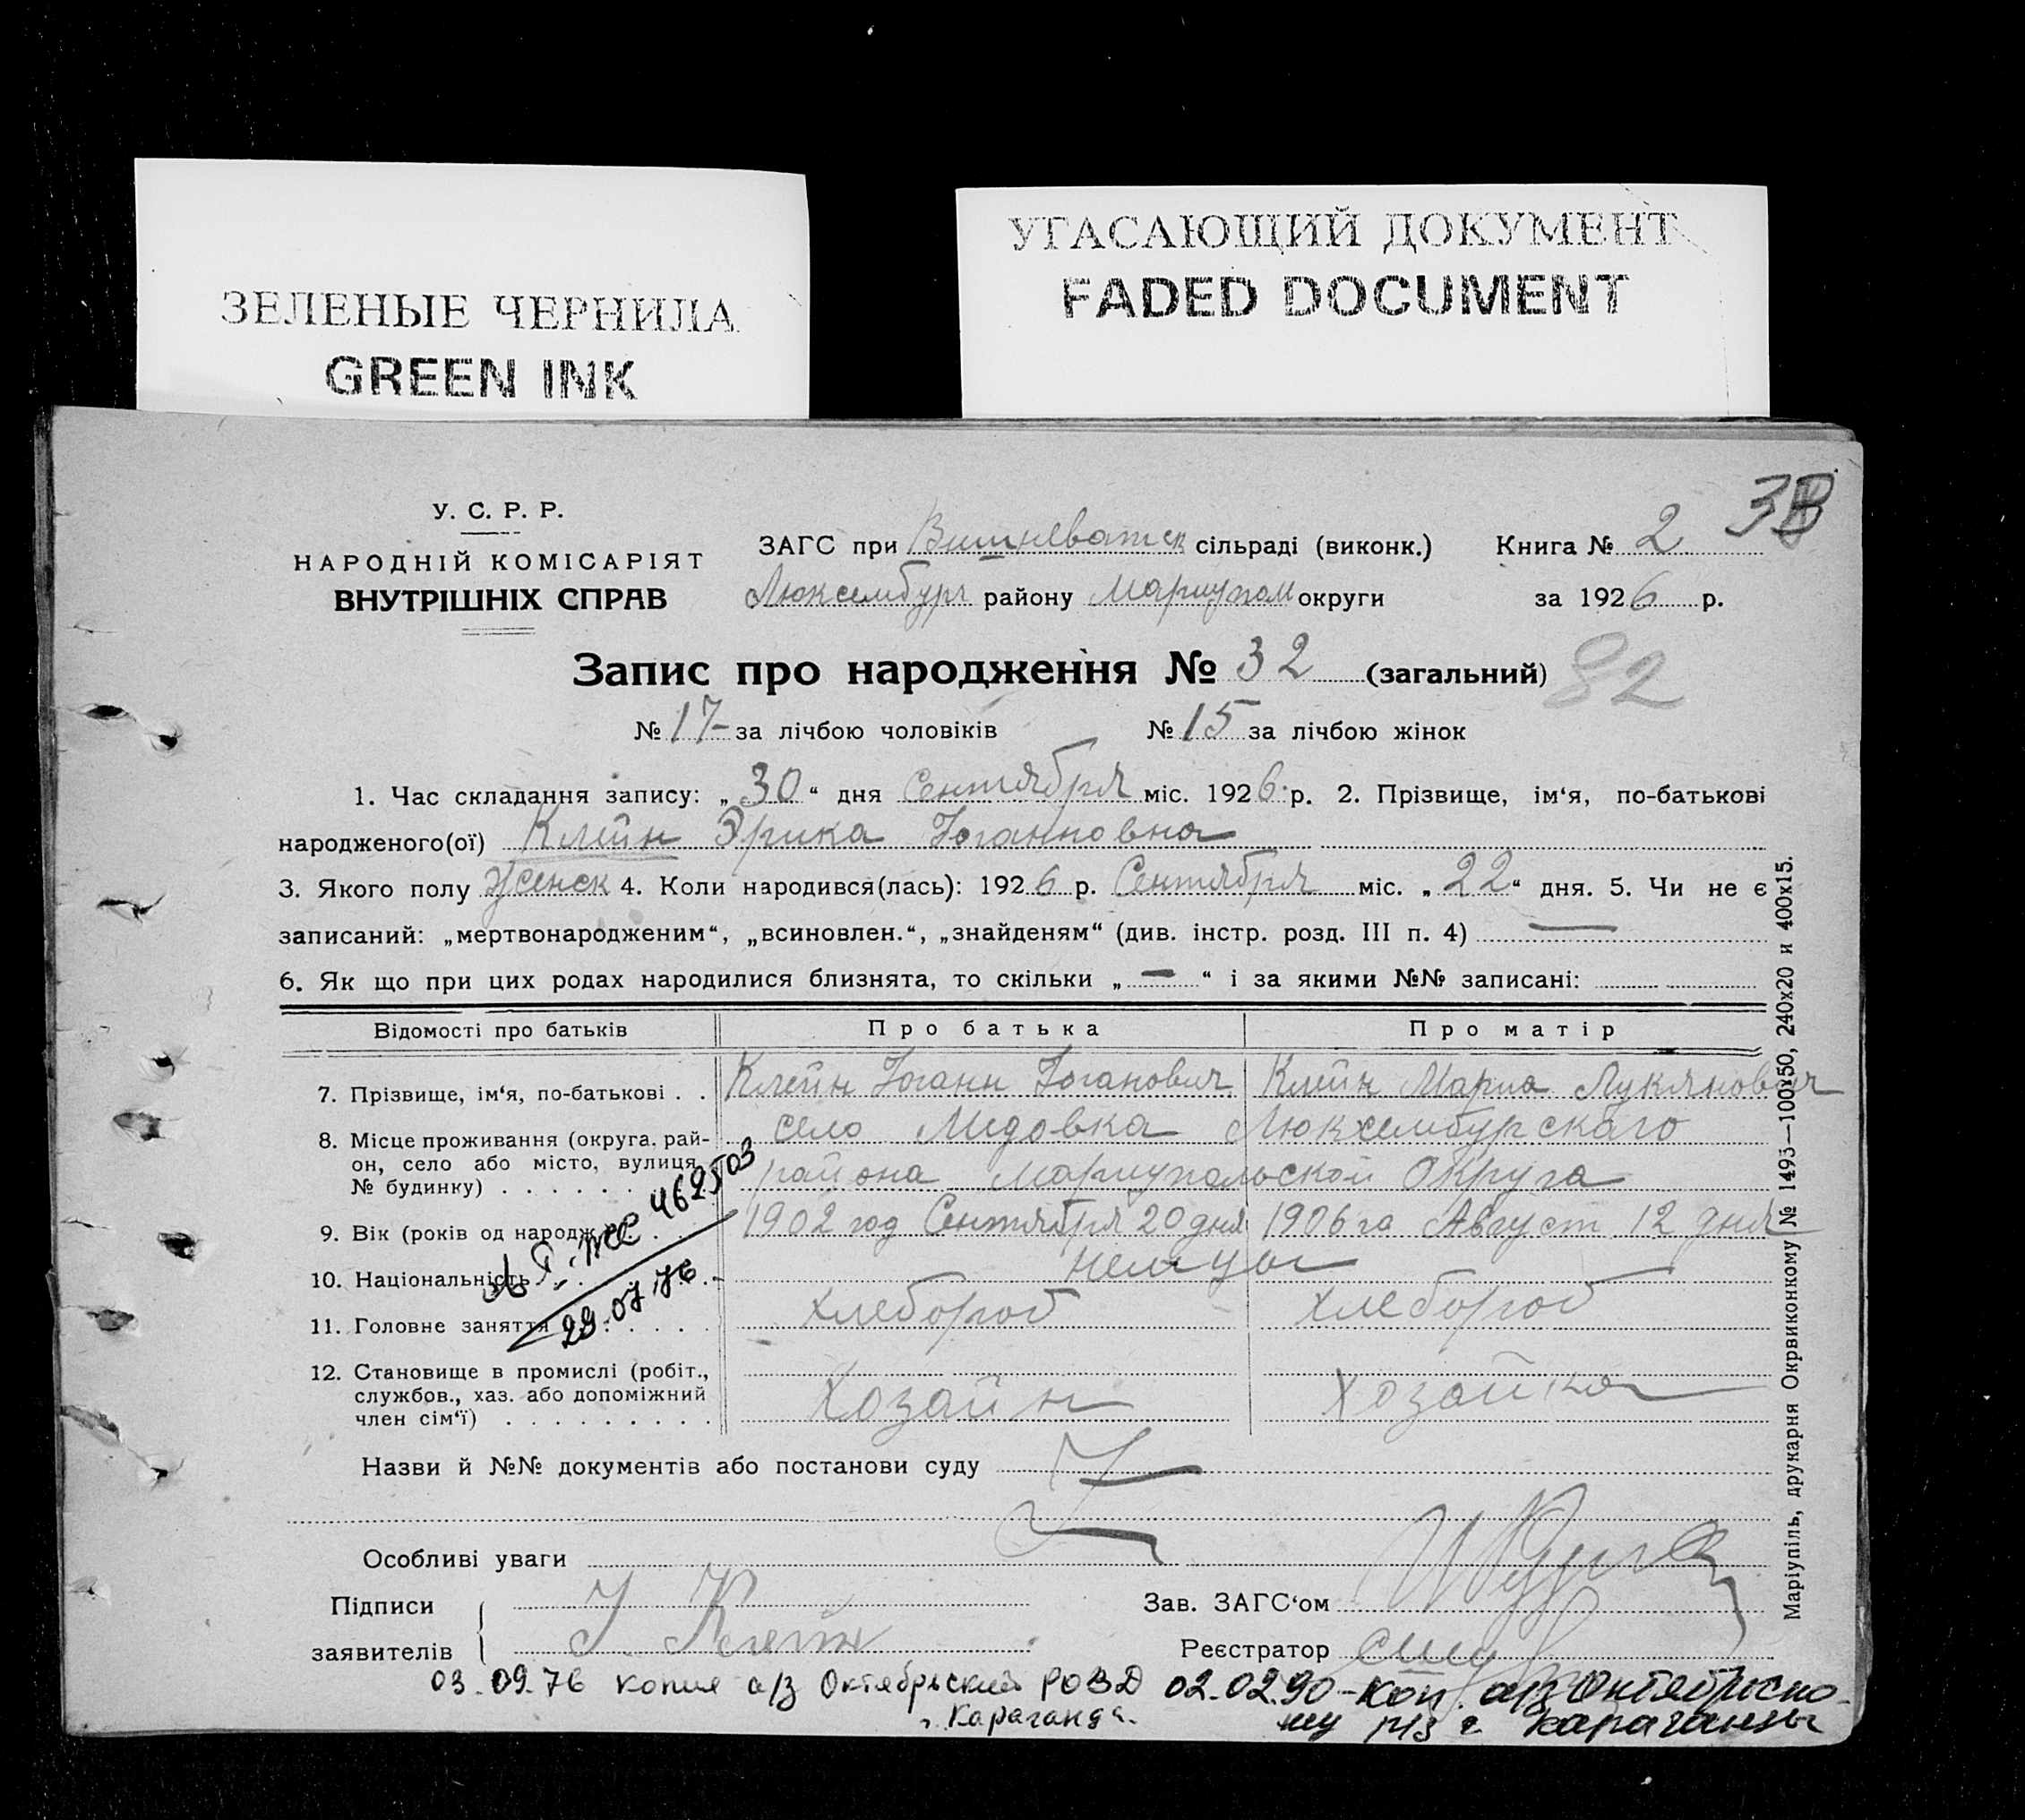 ЗЕЛЕНЫЕ ЧЕРНИЛА
GREEN INK
УГАСАЮЩИЙ ДОКУМЕНТ
FADED DOCUMENT
У. С. Р. Р.
НАРОДНІЙ КОМІСАРІЯТ
ВНУТРІШНІХ СПРАВ
ЗАГС при Вишневатск сільраді (виконк.) Книга № 2
Люксембург району Мариупол округи за 1926 р.
Запис про народження № 32 (загальний) 32
№ 17 за лічбою чоловіків № 15 за лічбою жінок
1. Час складання запису: „30“ дня Сентября міс. 1926 р. 2. Прізвище, ім‘я, по-батькові
народженого(ої) Клейн Эрика Иоганновна
3. Якого полу женск 4. Коли народився(лась): 1926 р. Сентября міс. „22“ дня. 5. Чи не є
записаний: „мертвонародженим“, „всиновлен.“, „знайденям“ (див. інстр. розд. III п. 4) —
6. Як що при цих родах народилися близнята, то скільки „—“ і за якими №№ записані:
Відомості про батьків Про батька Про матір
7. Прізвище, ім‘я, по-батькові . . Клейн Иоганн Иоганович Клейн Мария Лукянович
8. Місце проживання (округа, рай-
он, село або місто, вулиця,
№ будинку) . . . . . .
село Медовка Люксембурскаго
района Мариупольской Округа
9. Вік (років од народж 1902 год Сентября 20 дня 1906 го Август 12 дня
10. Національність немцы
11. Головне заняття хлебороб хлебороб
12. Становище в промислі (робіт.,
службов., хаз. або допоміжний
член сім‘ї) . . . . . . . . .
Хозайн Хозайка
462503
29.07.76
Назви й №№ документів або постанови суду
Особливі уваги
Підписи
заявителів
И Клейн
Зав. ЗАГС‘ом
Реєстратор
03.09.76 копия а/з Октябрьский РОВД
г. Караганда.
02.02.90 - коп. а/з Октябрьско-
му р/з г. Караганды
Маріупіль, друкарня Окрвиконкому № 1493—100х50, 240х20 и 400х15.